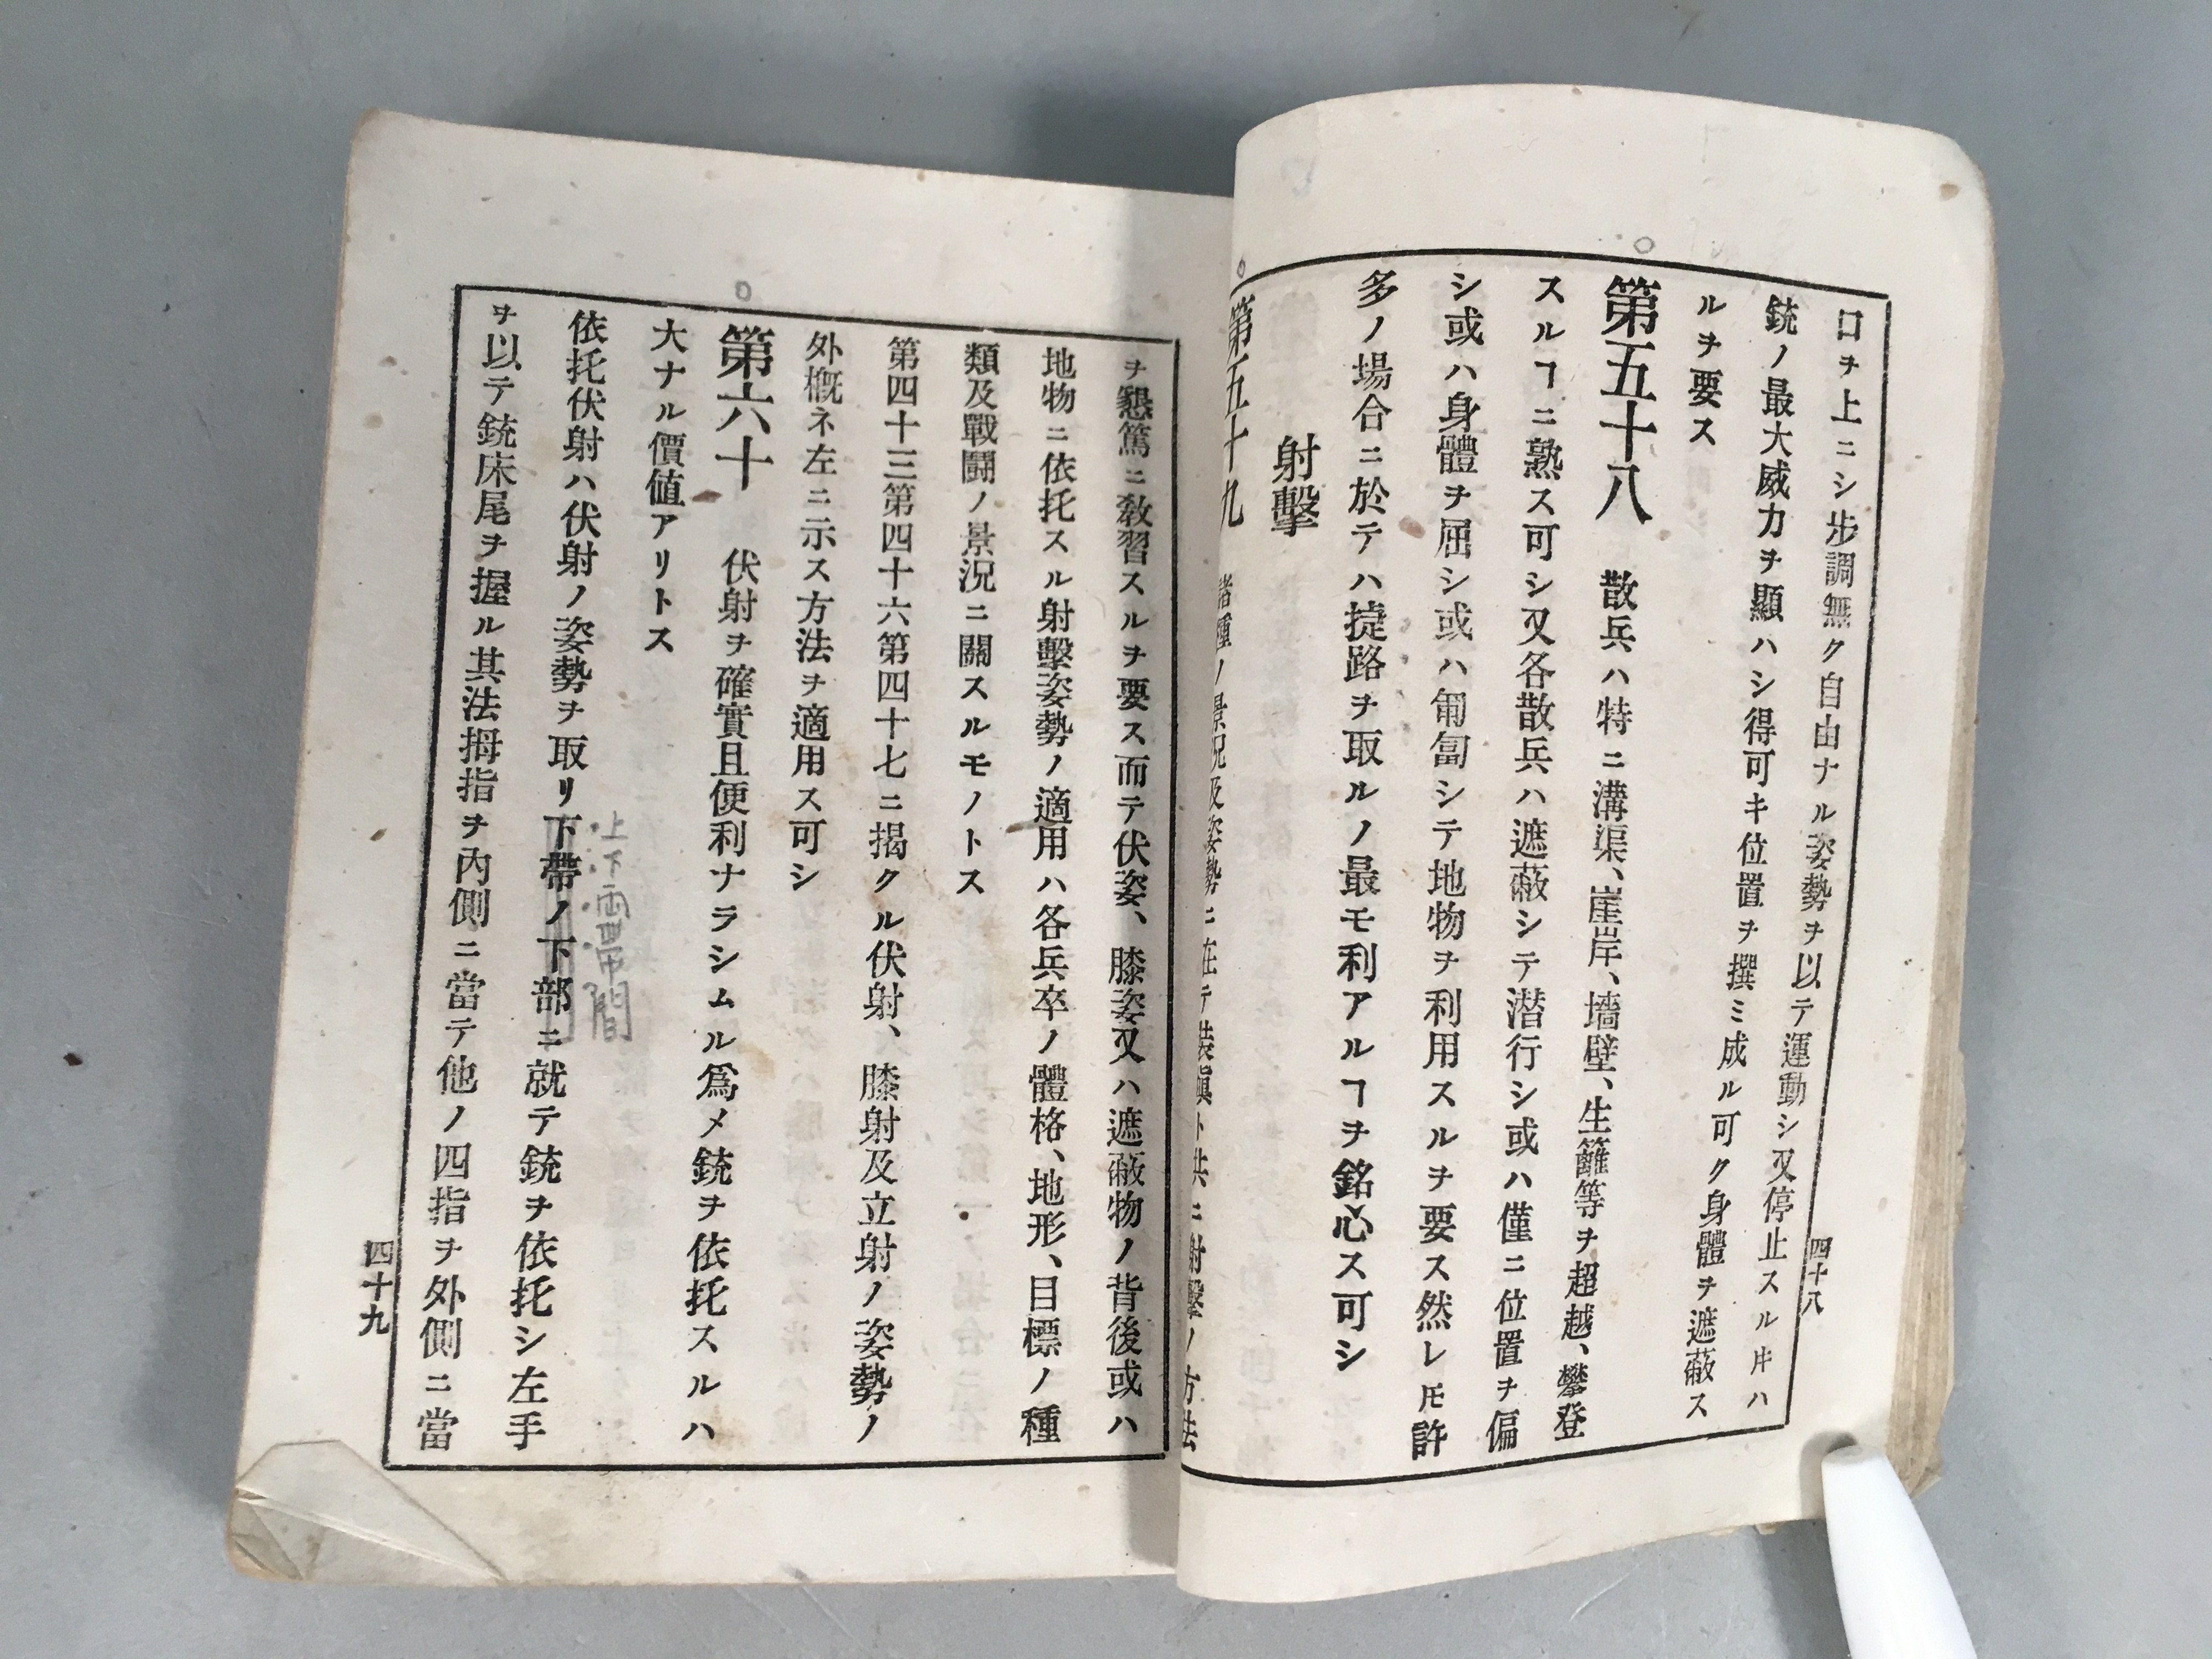 口ヲ上ニシ步調無ク自由ナル姿勢ヲ以テ運動シ又停止スル𪜈ハ
銃ノ最大威力ヲ顯ハシ得可キ位置ヲ撰ミ成ル可ク身體ヲ遮蔽ス
ルヲ要ス
第五十八 散兵ハ特ニ溝渠、崖岸、墻壁、生籬等ヲ超越、攀登
スルヿニ熟ス可シ又各散兵ハ遮蔽シテ潜行シ或ハ僅ニ位置ヲ偏
シ或ハ身體ヲ屈シ或ハ匍匐シテ地物ヲ利用スルヲ要ス然レ𪜈許
多ノ場合ニ於テハ捷路ヲ取ルノ最モ利アルヿヲ銘心ス可シ
射擊
第五十九 諸種ノ景況及姿勢ニ在テ裝塡ト共ニ射擊ノ方法
四十八
ヲ懇篤ニ敎習スルヲ要ス而テ伏姿、膝姿又ハ遮蔽物ノ背後或ハ
地物ニ依托スル射擊姿勢ノ適用ハ各兵卒ノ體格、地形、目標ノ種
類及戰鬪ノ景況ニ關スルモノトス
第四十三第四十六第四十七ニ揭クル伏射、膝射及立射ノ姿勢ノ
外概ネ左ニ示ス方法ヲ適用ス可シ
第六十 伏射ヲ確實且便利ナラシムル爲メ銃ヲ依托スルハ
大ナル價値アリトス
上下兩帶間
依托伏射ハ伏射ノ姿勢ヲ取リ下帶ノ下部ニ就テ銃ヲ依托シ左手
ヲ以テ銃床尾ヲ握ル其法拇指ヲ內側ニ當テ他ノ四指ヲ外側ニ當
四十九